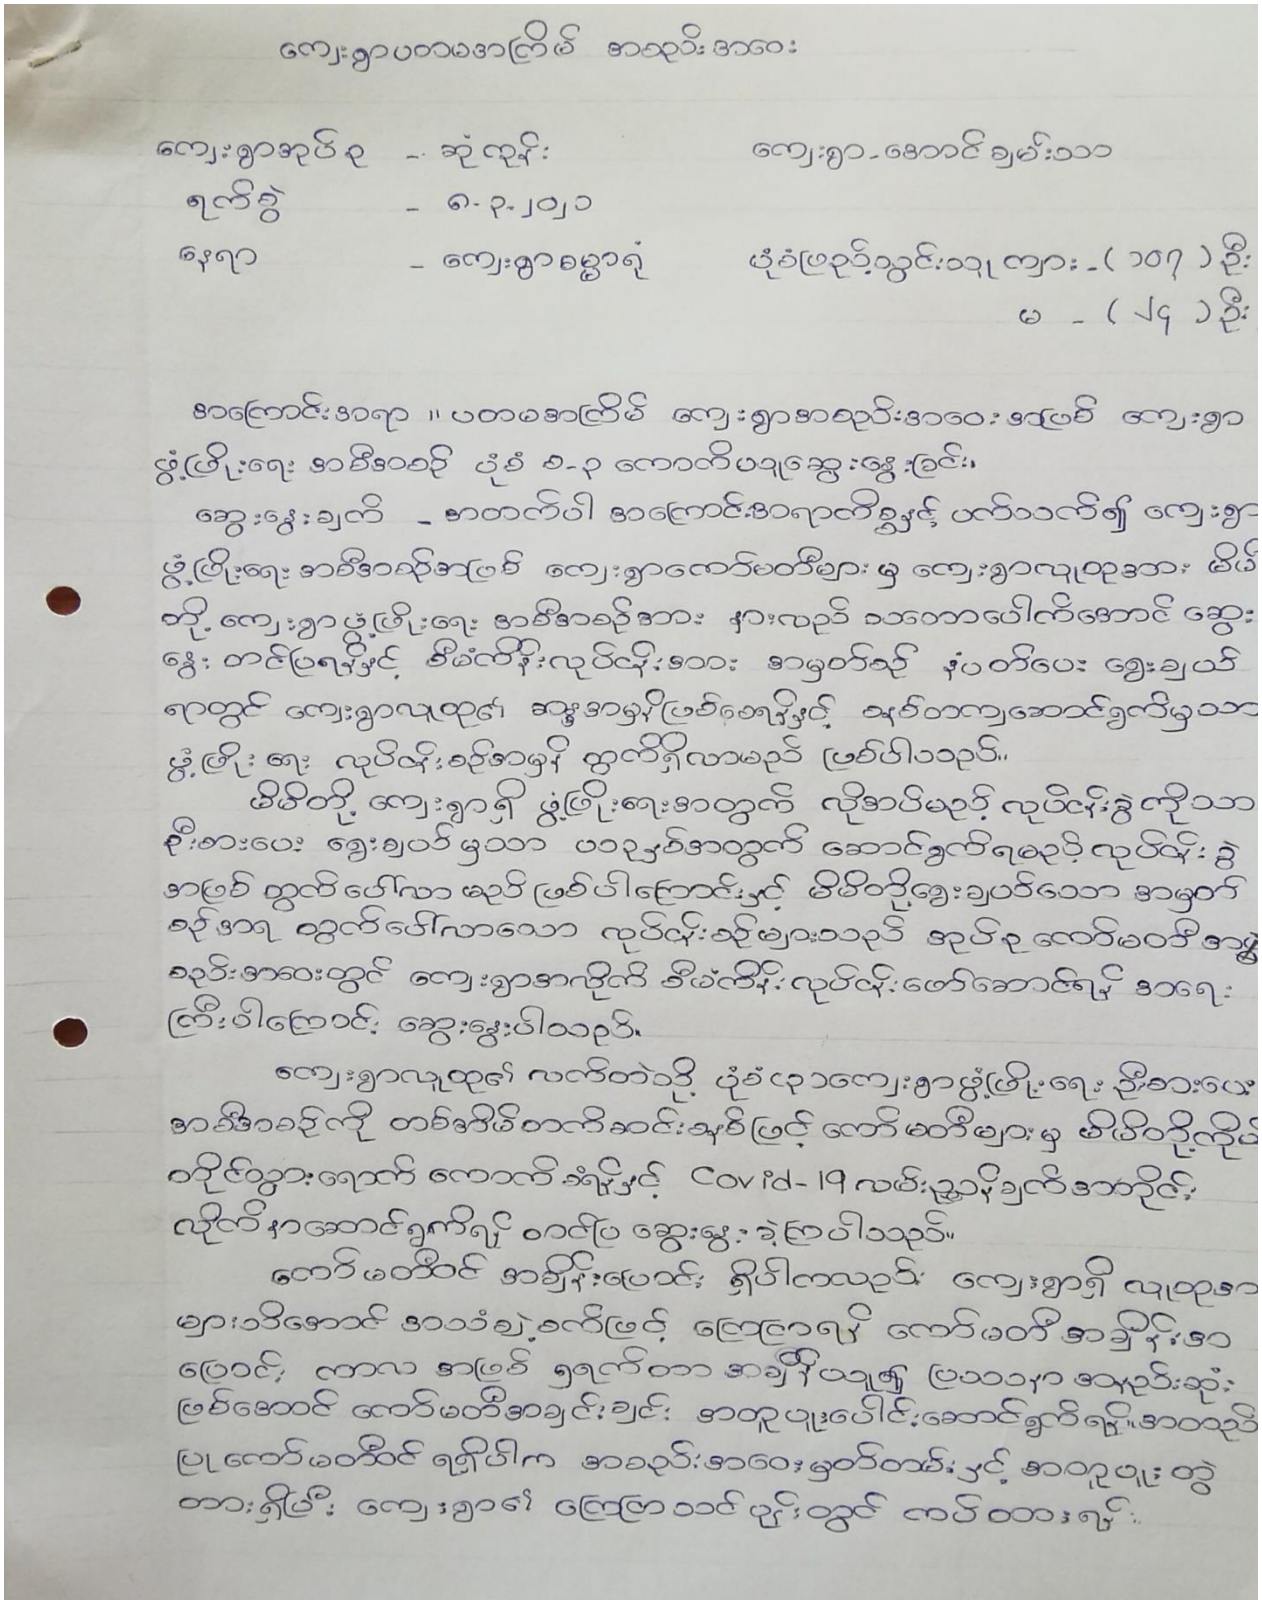 ကျေးရွာပထမအကြိမ် အစည်းအဝေး
ကျေးရွာအုပ်စု - ဆုံကုန်း ကျေးရွာ - အောင်ချမ်းသာ
ရက်စွဲ - ၈-၃-၂၀၂၁
နေရာ - ကျေးရွာဓမ္မာရုံ ပုံစံဖြည့်သွင်းသူ ကျား - ( ၁၀၇ ) ဦး
မ - ( ၂၄ ) ဦး
အကြောင်းအရာ ။ ပထမအကြိမ် ကျေးရွာအစည်းအဝေးအဖြစ် ကျေးရွာ
ဖွံ့ဖြိုးရေး အစီအစဉ် ပုံစံ စ-၃ ကောက်ယူဆွေးနွေးခြင်း။
ဆွေးနွေးချက် - အထက်ပါ အကြောင်းအရာကိစ္စနှင့် ပက်သက်၍ ကျေးရွာ
ဖွံ့ဖြိုးရေး အစီအစဉ်အဖြစ် ကျေးရွာကော်မတီများ မှ ကျေးရွာလူထုအား မိမိ
တို့ ကျေးရွာ ဖွံ့ဖြိုးရေး အစီအစဉ်အား နားလည် သဘောပေါက်အောင် ဆွေး
နွေး တင်ပြရန်နှင့် စီမံကိန်းလုပ်ငန်းအား အမှတ်စဉ် နံပတ်ပေး ရွေးချယ်
ရာတွင် ကျေးရွာလူထု၏ ဆန္ဒအမှန်ဖြစ်စေရန်နှင့် စနစ်တကျဆောင်ရွက်မှသာ
ဖွံ့ဖြိုး ရေး လုပ်ငန်းစဉ်အမှန် ထွက်ရှိလာမည် ဖြစ်ပါသည်။
မိမိတို့ ကျေးရွာရှိ ဖွံ့ဖြိုးရေးအတွက် လိုအပ်မည့် လုပ်ငန်းခွဲကိုသာ
ဦးစားပေး ရွေးချယ်မှသာ ယခုနှစ်အတွက် ဆောင်ရွက်ရမည့် လုပ်ငန်း ခွဲ
အဖြစ် ထွက်ပေါ်လာ မည် ဖြစ်ပါကြောင်းနှင့် မိမိတို့ရွေးချယ်သော အမှတ်
စဉ်အရ ထွက်ပေါ်လာသော လုပ်ငန်းစဉ်များသည် အုပ်စု ကော်မတီ
စည်းအဝေးတွင် ကျေးရွာအလိုက် စီမံကိန်း လုပ်ငန်းဖော်ဆောင်ရန် အရေး
ကြီးပါကြောင်း ဆွေးနွေးပါသည်။
ကျေးရွာလူထု၏ လက်ထဲသို့ ပုံစံ ကျေးရွာဖွံ့ဖြိုးရေး ဦးစားပေး
အစီအစဉ်ကို တစ်အိမ်တက်ဆင်းစနစ်ဖြင့် ကော်မတီများ မှ မိမိတို့ကိုယ်
တိုင်သွားရောက် ကောက်ခံရန်နှင့် Covid-19 လမ်းညွှန်ချက်အတိုင်း
လိုက်နာဆောင်ရွက်ရန် တင်ပြ ဆွေးနွေး ခဲ့ကြပါသည်။
ကော်မတီဝင် အချိန်းပြောင်း ရှိပါကလည်း ကျေးရွာရှိ လူထုအာ
များသိအောင် အသံချဲ့စက်ဖြင့် ကြေငြာရန် ကော်မတီ အချိန်းအ
ပြောင်း ကာလ အဖြစ် ၅ရက်တာ အချိန်ယူ၍ ပြဿနာ အနည်းဆုံး
ဖြစ်အောင် ကော်မတီအချင်းချင်း အတူပူးပေါင်းဆောင်ရွက်ရန်။ အတည်
ပြု ကော်မတီဝင် ရရှိပါက အစည်းအဝေးမှတ်တမ်းနှင့် အတူပူးတွဲ
ထားရှိပြီး ကျေးရွာ၏ ကြေငြာသင်ပုန်းတွင် ကပ်ထားရန်။